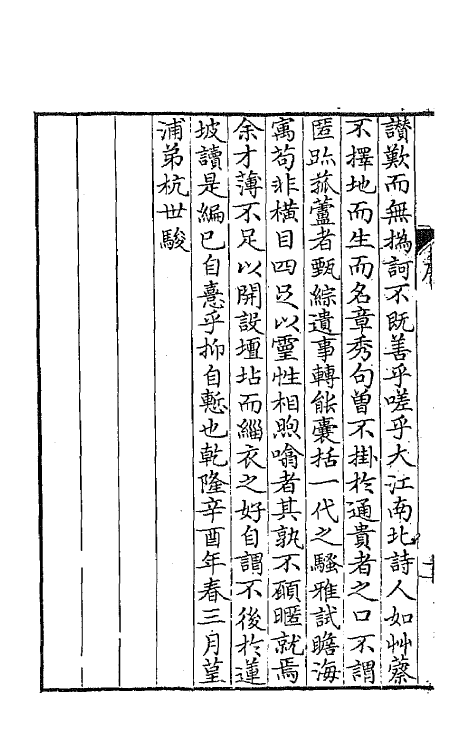 讚歎而無撝訶不既善乎嗟乎大江南北詩人如艸藂
不擇地而生而名章秀句曽不掛於通貴者之口不謂
匿跡菰蘆者甄綜遺事轉能囊括一代之騷雅試瞻海
寓茍非橫目四足以靈性相煦噏者其孰不願暱就焉
余才薄不足以開設壇坫而緇衣之好自謂不後於蓮
坡讀是編已自憙乎抑自慙也乾隆辛酉年春三月堇
浦弟杭世駿